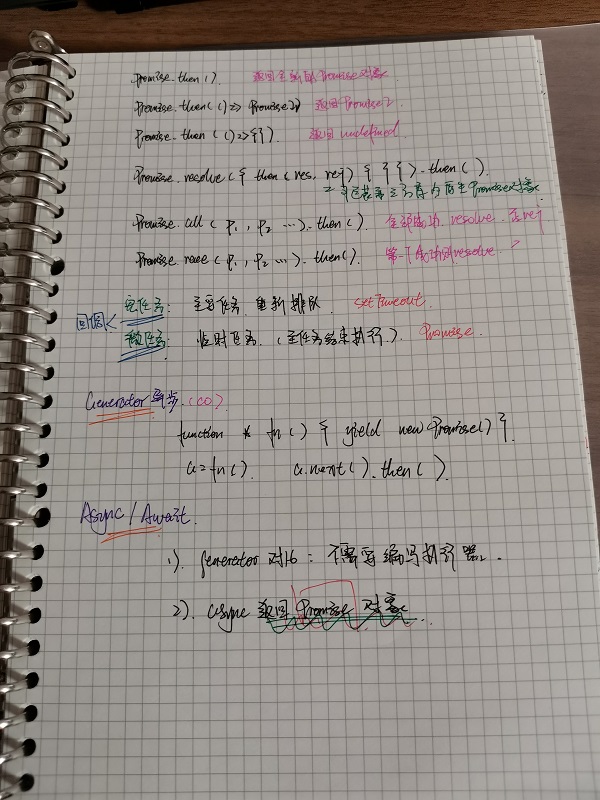 Promise.then() 返回全新的Promise对象
Promise.then(()=> Promise2) 返回Promise2
Promise.then(()=>{}) 返回undefined
Promise.resolve({ then(res, rej) { } }).then().
Promise对象
Promise.all(P1, P2 ...).then() 全部成功 resolve. 否rej
Promise.race(P1, P2 ...).then() 第一个成功则resolve.
回调< 宏任务: 主要任务 重新排队 setTimeout
微任务: 临时任务. (主任务结束执行). Promise.
Generator 异步 (CO).
function * fn() { yield new Promise() }.
a=fn(). a.next().then().
Async/Await.
1). generator 对比: 不需要编写执行器.
2). async 返回 Promise 对象.